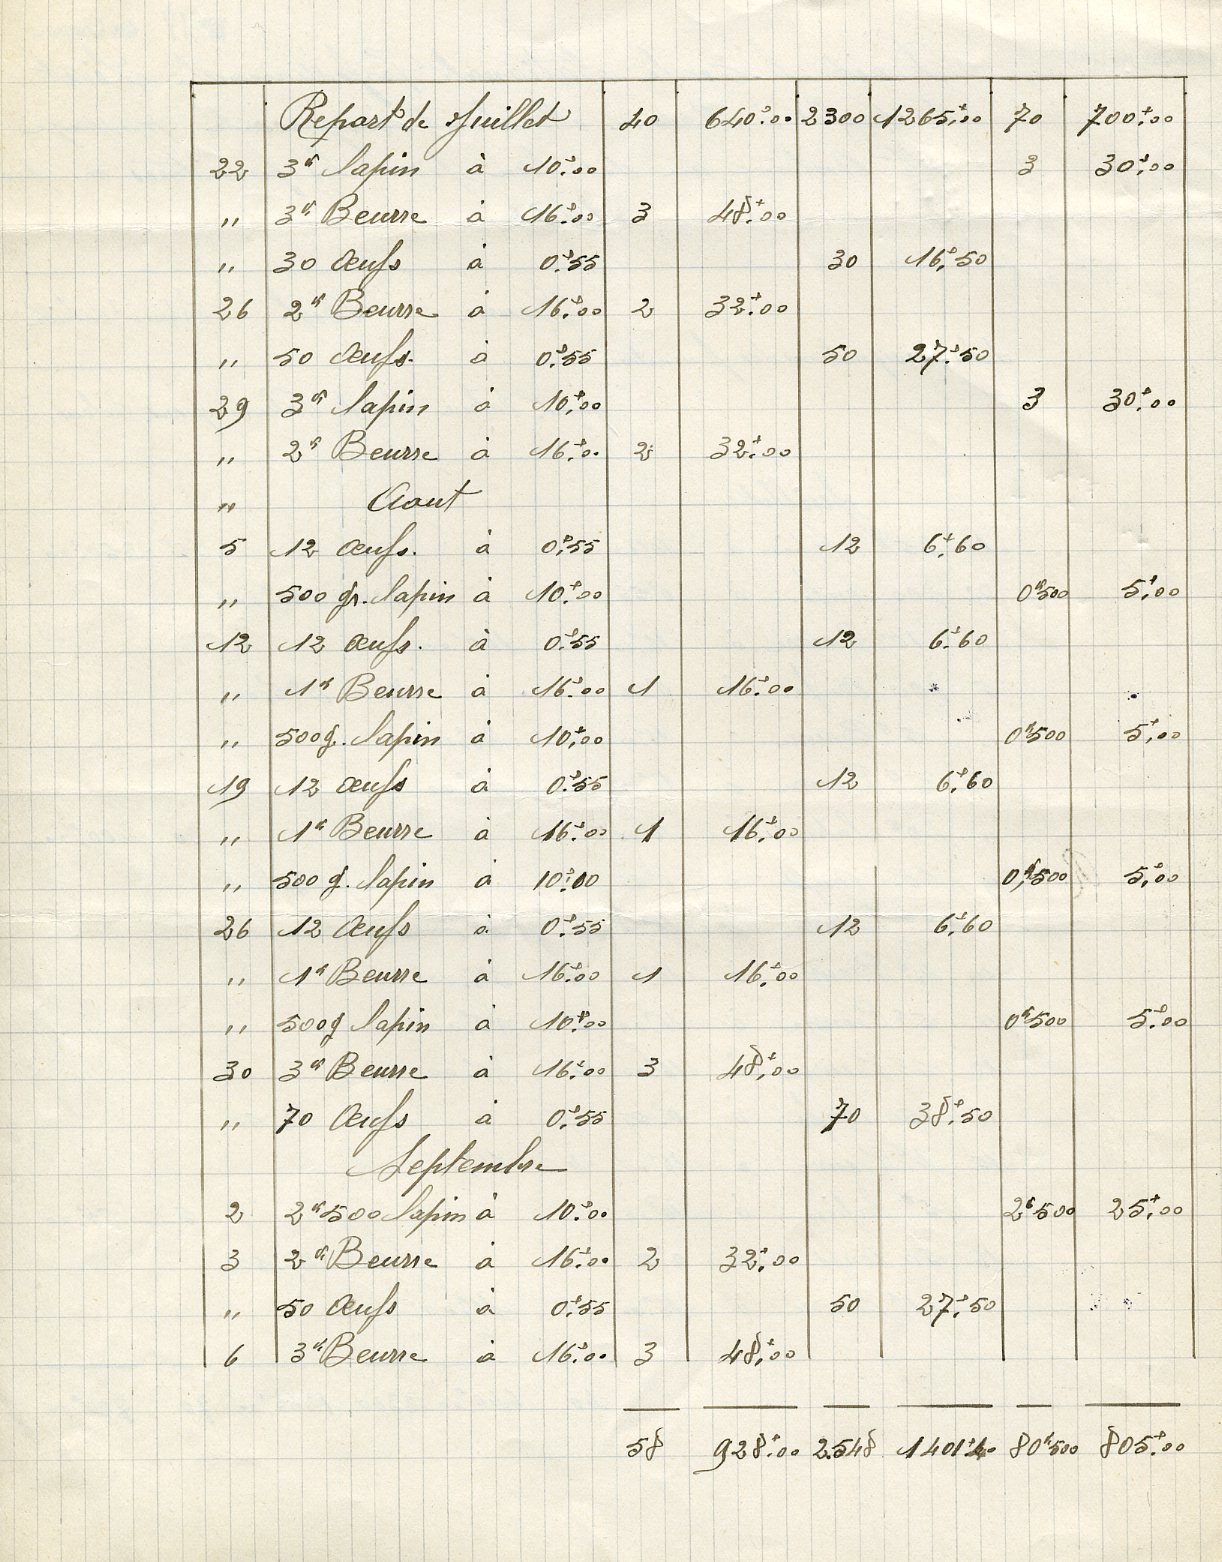 Report de Juillet 40 640f.00 2300 1265f.00 70 700f.00
22 3k lapin à 10f.00 3 30f.00
" 3k Beurre à 16f.00 3 48f.00
" 30 Œufs à 0f.55 30 16f.50
26 2k Beurre à 16f.00 2 32f.00
" 50 Œufs. à 0f.55 50 27f.50
29 3k lapin à 10f.00 3 30f.00
" 2k Beurre à 16f.0. 2 32f.00
" Aout
5 12 Œufs. à 0f.55 12 6f.60
" 500 gr. lapin à 10f.00 0k500 5f.00
12 12 Œufs. à 0f.55 12 6f.60
" 1k Beurre à 16f.00 1 16f.00
" 500g. lapin à 10f.00 0k500 5f.00
19 12 Œufs à 0f.55 12 6f.60
" 1k Beurre à 16f.00 1 16f.00
" 500 g. lapin à 10f.00 0k500 5f.00
26 12 Œufs à 0f.55 12 6f.60
" 1k Beurre à 16f.00 1 16f.00
" 500g lapin à 10f.00 0k500 5f.00
30 3k Beurre à 16f.00 3 48f.00
" 70 Œufs à 0f.55 70 38f.50
Septembre
2 2k500 lapin à 10f.00 2k500 25f.00
3 2k Beurre à 16f.00 2 32f.00
" 50 Œufs à 0f.55 50 27f.50
6 3k Beurre à 16f.00 3 48f.00
58 928f.00 2548 1401f40 80k500 805f.00